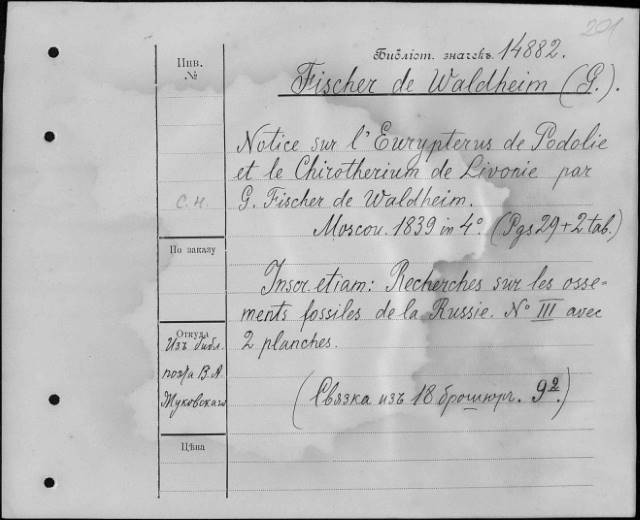 201
Библіот. значекъ 14882.
Fischer de Waldheim (G.).
Инв.
№
Notice sur l'Eurypterus de Podolie
et le Chirotherium de Livonie par
G. Fischer de Waldheim.
Moscou. 1839 in 4º. (Pgs 29 + 2 tab.)
с.н.
По заказу
Inscr. etiam: Recherches sur les osse-
ments fossiles de la Russie. № III avec
2 planches.
Откуда
Изъ библ.
поэта В. А.
Жуковскаго
(Связка изъ 18 брошюръ. 9º.)
Цѣна